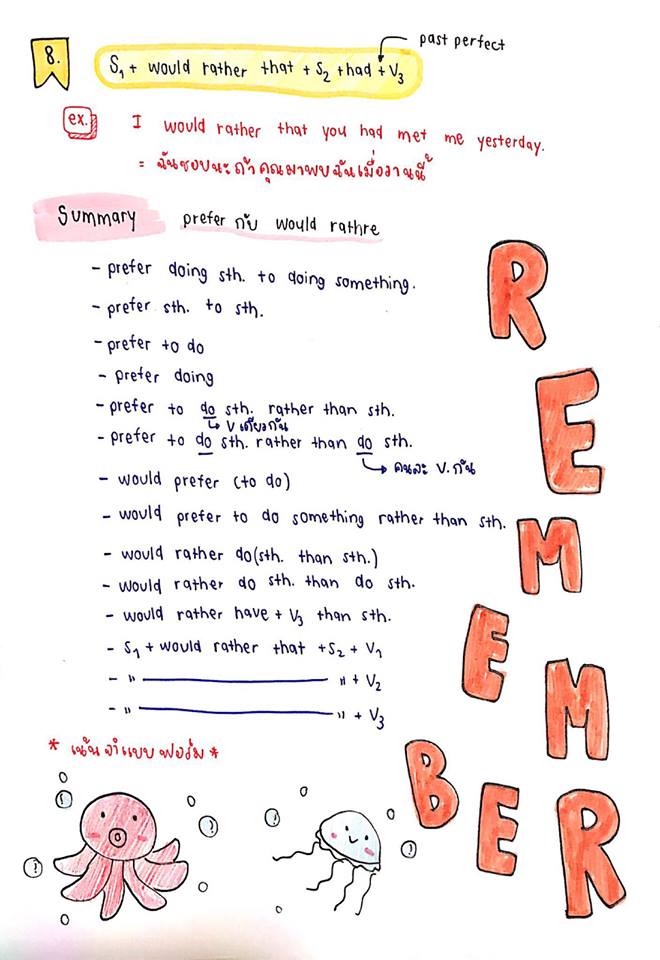 8.
S₁ + would rather that + S₂ + had + V₃
past perfect
ex. I would rather that you had met me yesterday.
= ฉันชอบนะถ้าคุณมาพบฉันเมื่อวานนี้
Summary prefer กับ would rathre
- prefer doing sth. to doing something.
- prefer sth. to sth.
- prefer to do
- prefer doing
- prefer to do sth. rather than sth.
↳ V เดียวกัน
- prefer to do sth. rather than do sth.
↳ คนละ V. กัน
- would prefer (to do)
- would prefer to do something rather than sth.
- would rather do (sth. than sth.)
- would rather do sth. than do sth.
- would rather have + V₃ than sth.
- S₁ + would rather that + S₂ + V₁
- " ———— " + V₂
- " ———— " + V₃
* เน้นจำแบบฟอร์ม *
REMEMBER